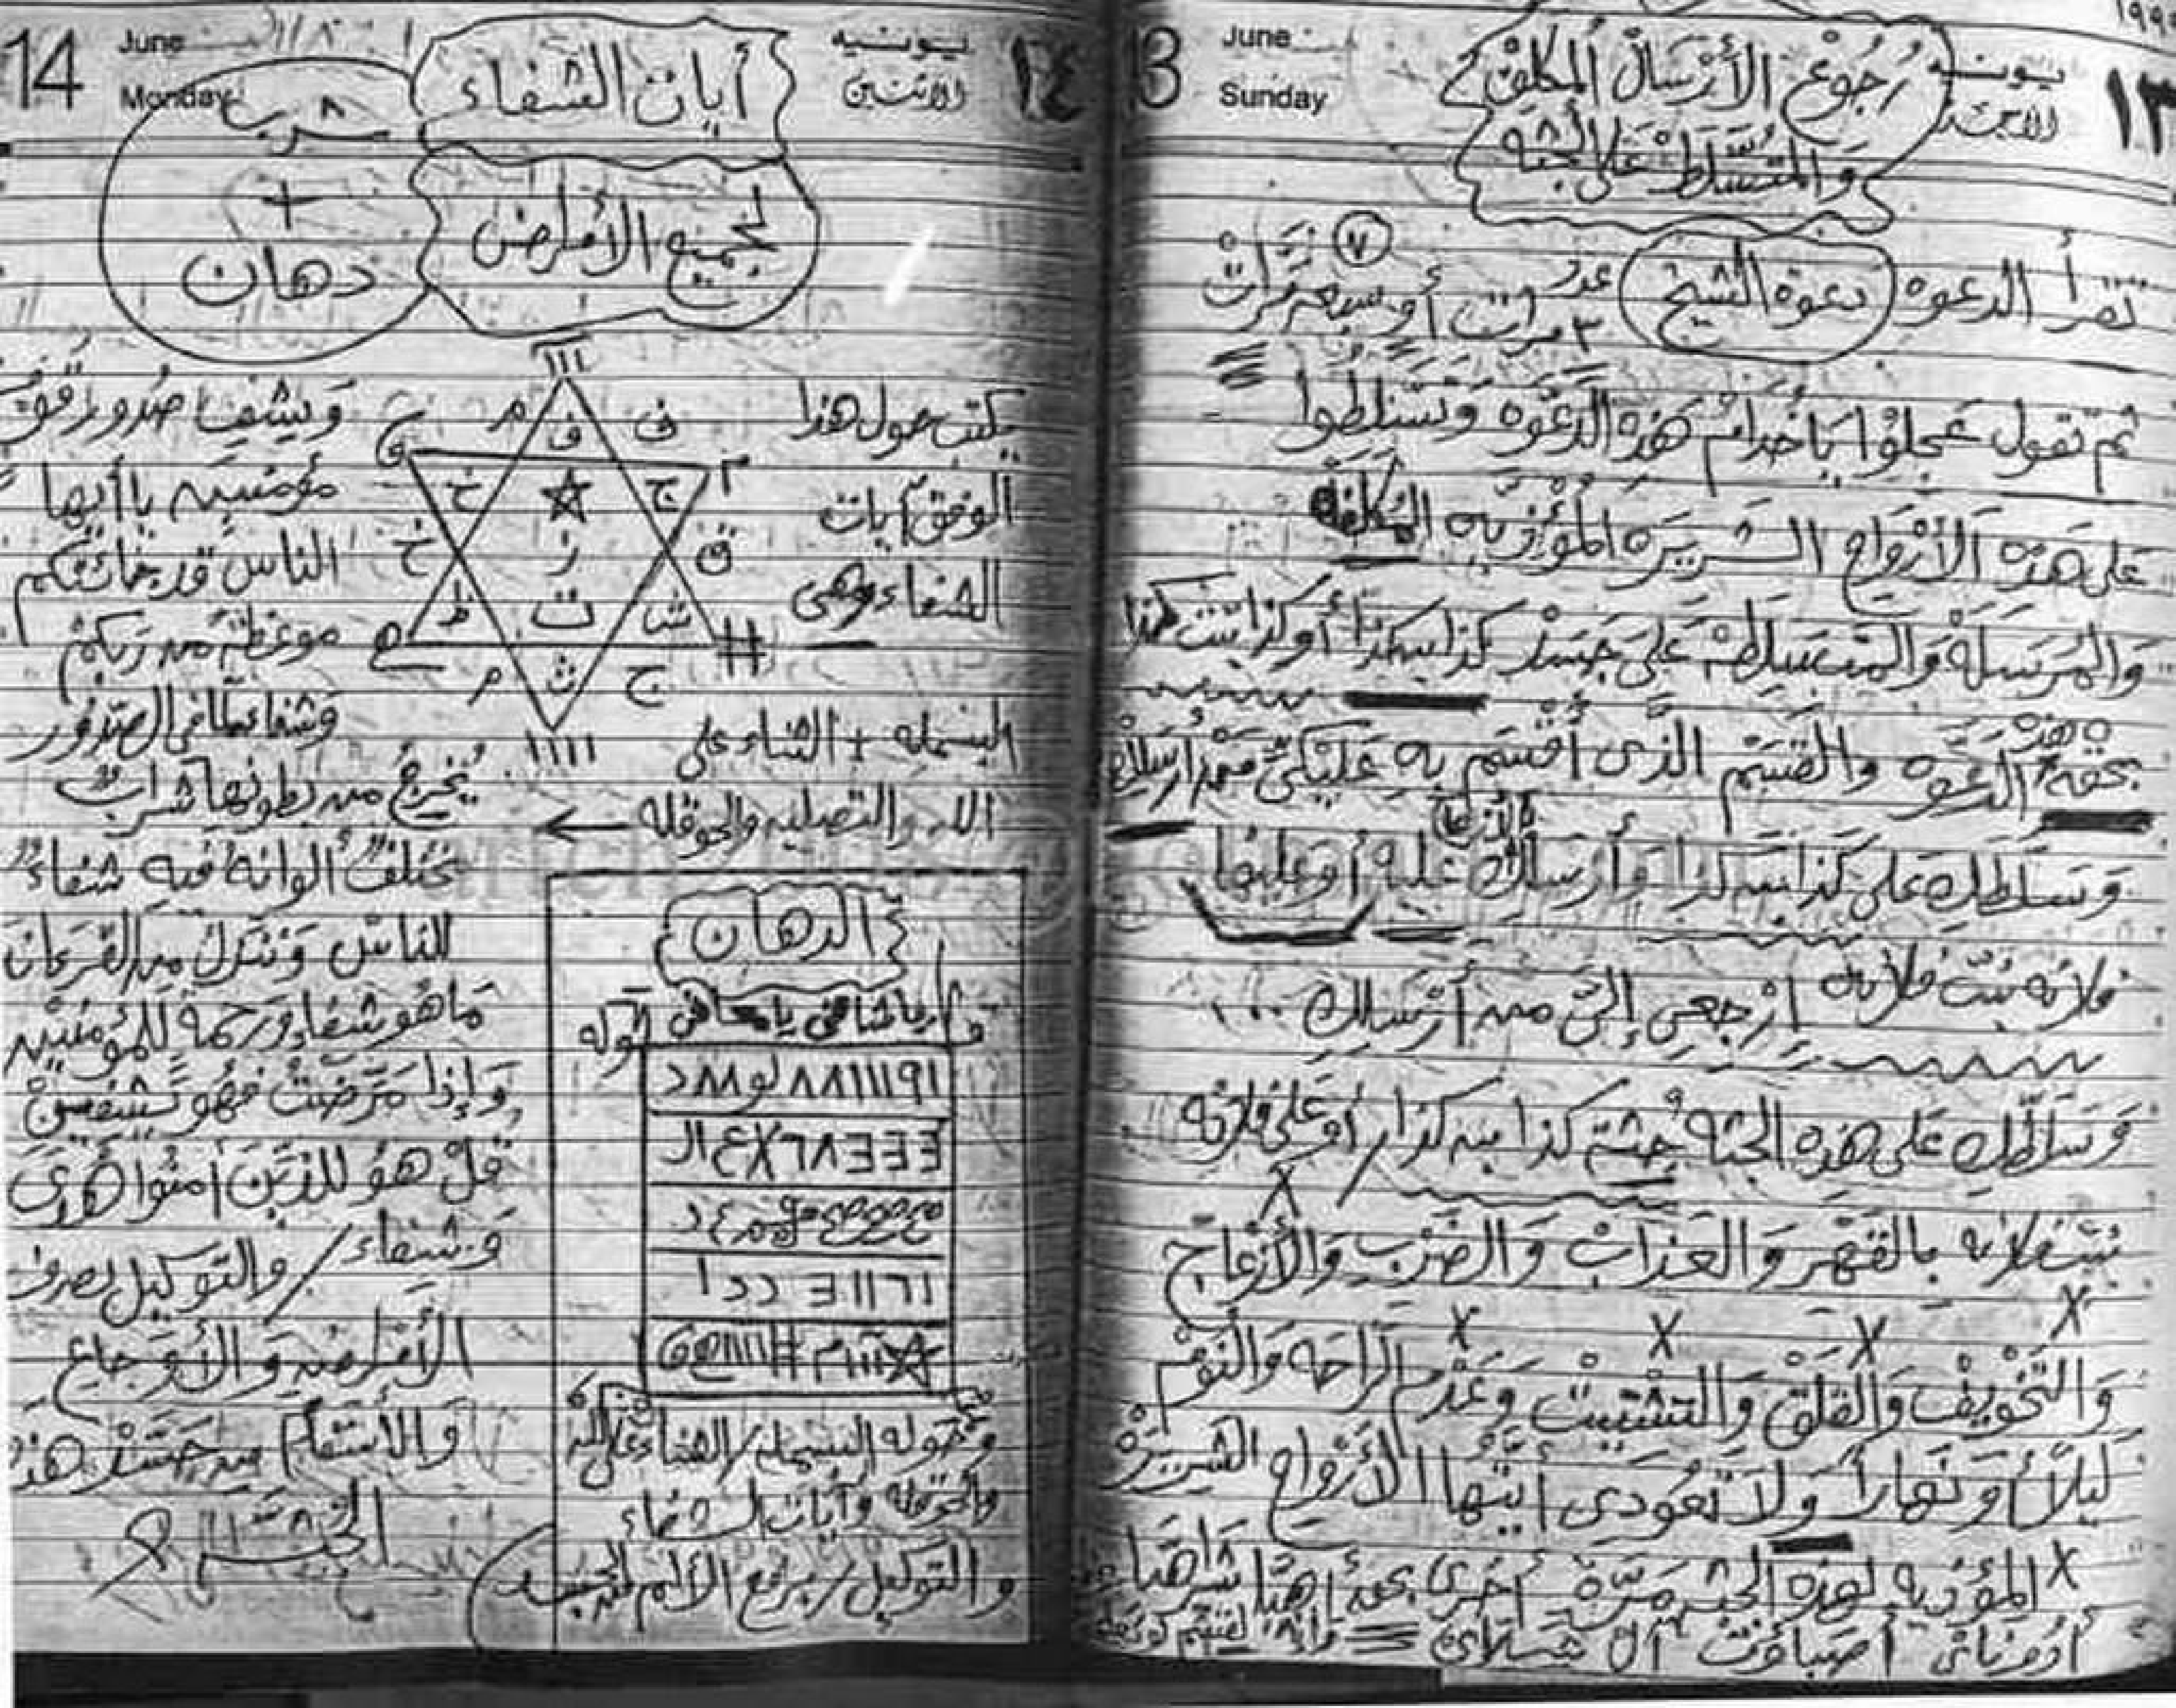 ١٣
يونيه
الأحد
June
Sunday
13
رجوع الأرسال المكلف
والمتسلط على الجثه
تقرأ الدعوه دعوة الشيخ عدد
٣ مرات أو سبعة مرات
٧
ثم تقول عجلوا يا خدام هذه الدعوه وتسلطوا
على هذه الأرواح الشريره المؤذيه المكلفه
والمرسلة والمتسلطه على جسد كذا بن كذا أو كذا بنت كذا
بحق هذه الدعوه والقسم الذى أقسم به عليكى من أرسلك
وسلطك على كذا بن كذا وأرسلك عليه أو عليها
فلانه بنت فلانه ارجعى إلى من أرسلك
وسلطك على هذه الجثه جثة كذا بن كذا / أو على فلانه
بنت فلانه بالقهر والعذاب والضرب والأزعاج
والتخويف والقلق والتشتيت وعدم الراحه والنوم
ليلاً ونهاراً ولا تعودى أيتها الأرواح الشريرة
المؤذيه لهذه الجثه مرة أخرى بحق أهيا شراهيا
أدوناى أصباؤت آل شداى وإنه لقسم لو
١٤
يونيه
الاثنين
June
Monday
14
أيات الشفاء
لجميع الأمراض
شرب
+
دهان
يكتب حول هذا
الوفق آيات
الشفاء وهى
البسمله + الثناء على
الله والتصليه والحوقله
ف
م
ف
ج
خ
ق
ز
خ
ش
ت
ظ
ج
ث
م
ويشف صدور قوم
مؤمنين يا أيها
الناس قد جائتكم
موعظة من ربكم
وشفاء لما فى الصدور
يخرج من بطونها شراب
مختلف ألوانه فيه شفاء
للناس وننزل من القرءان
ما هو شفاء ورحمة للمؤمنين
وإذا مرضت فهو يشفين
قل هو للذين أمنوا هدى
وشفاء / والتوكيل بصرف
الأمراض والأوجاع
والأسقام من جسد هذه
الجثه
الدهان
يا شافى يا معافى
وحوله البسمله / الثناء على الله
والحوقله وآيات الشفاء
والتوكيل / برفع الألم